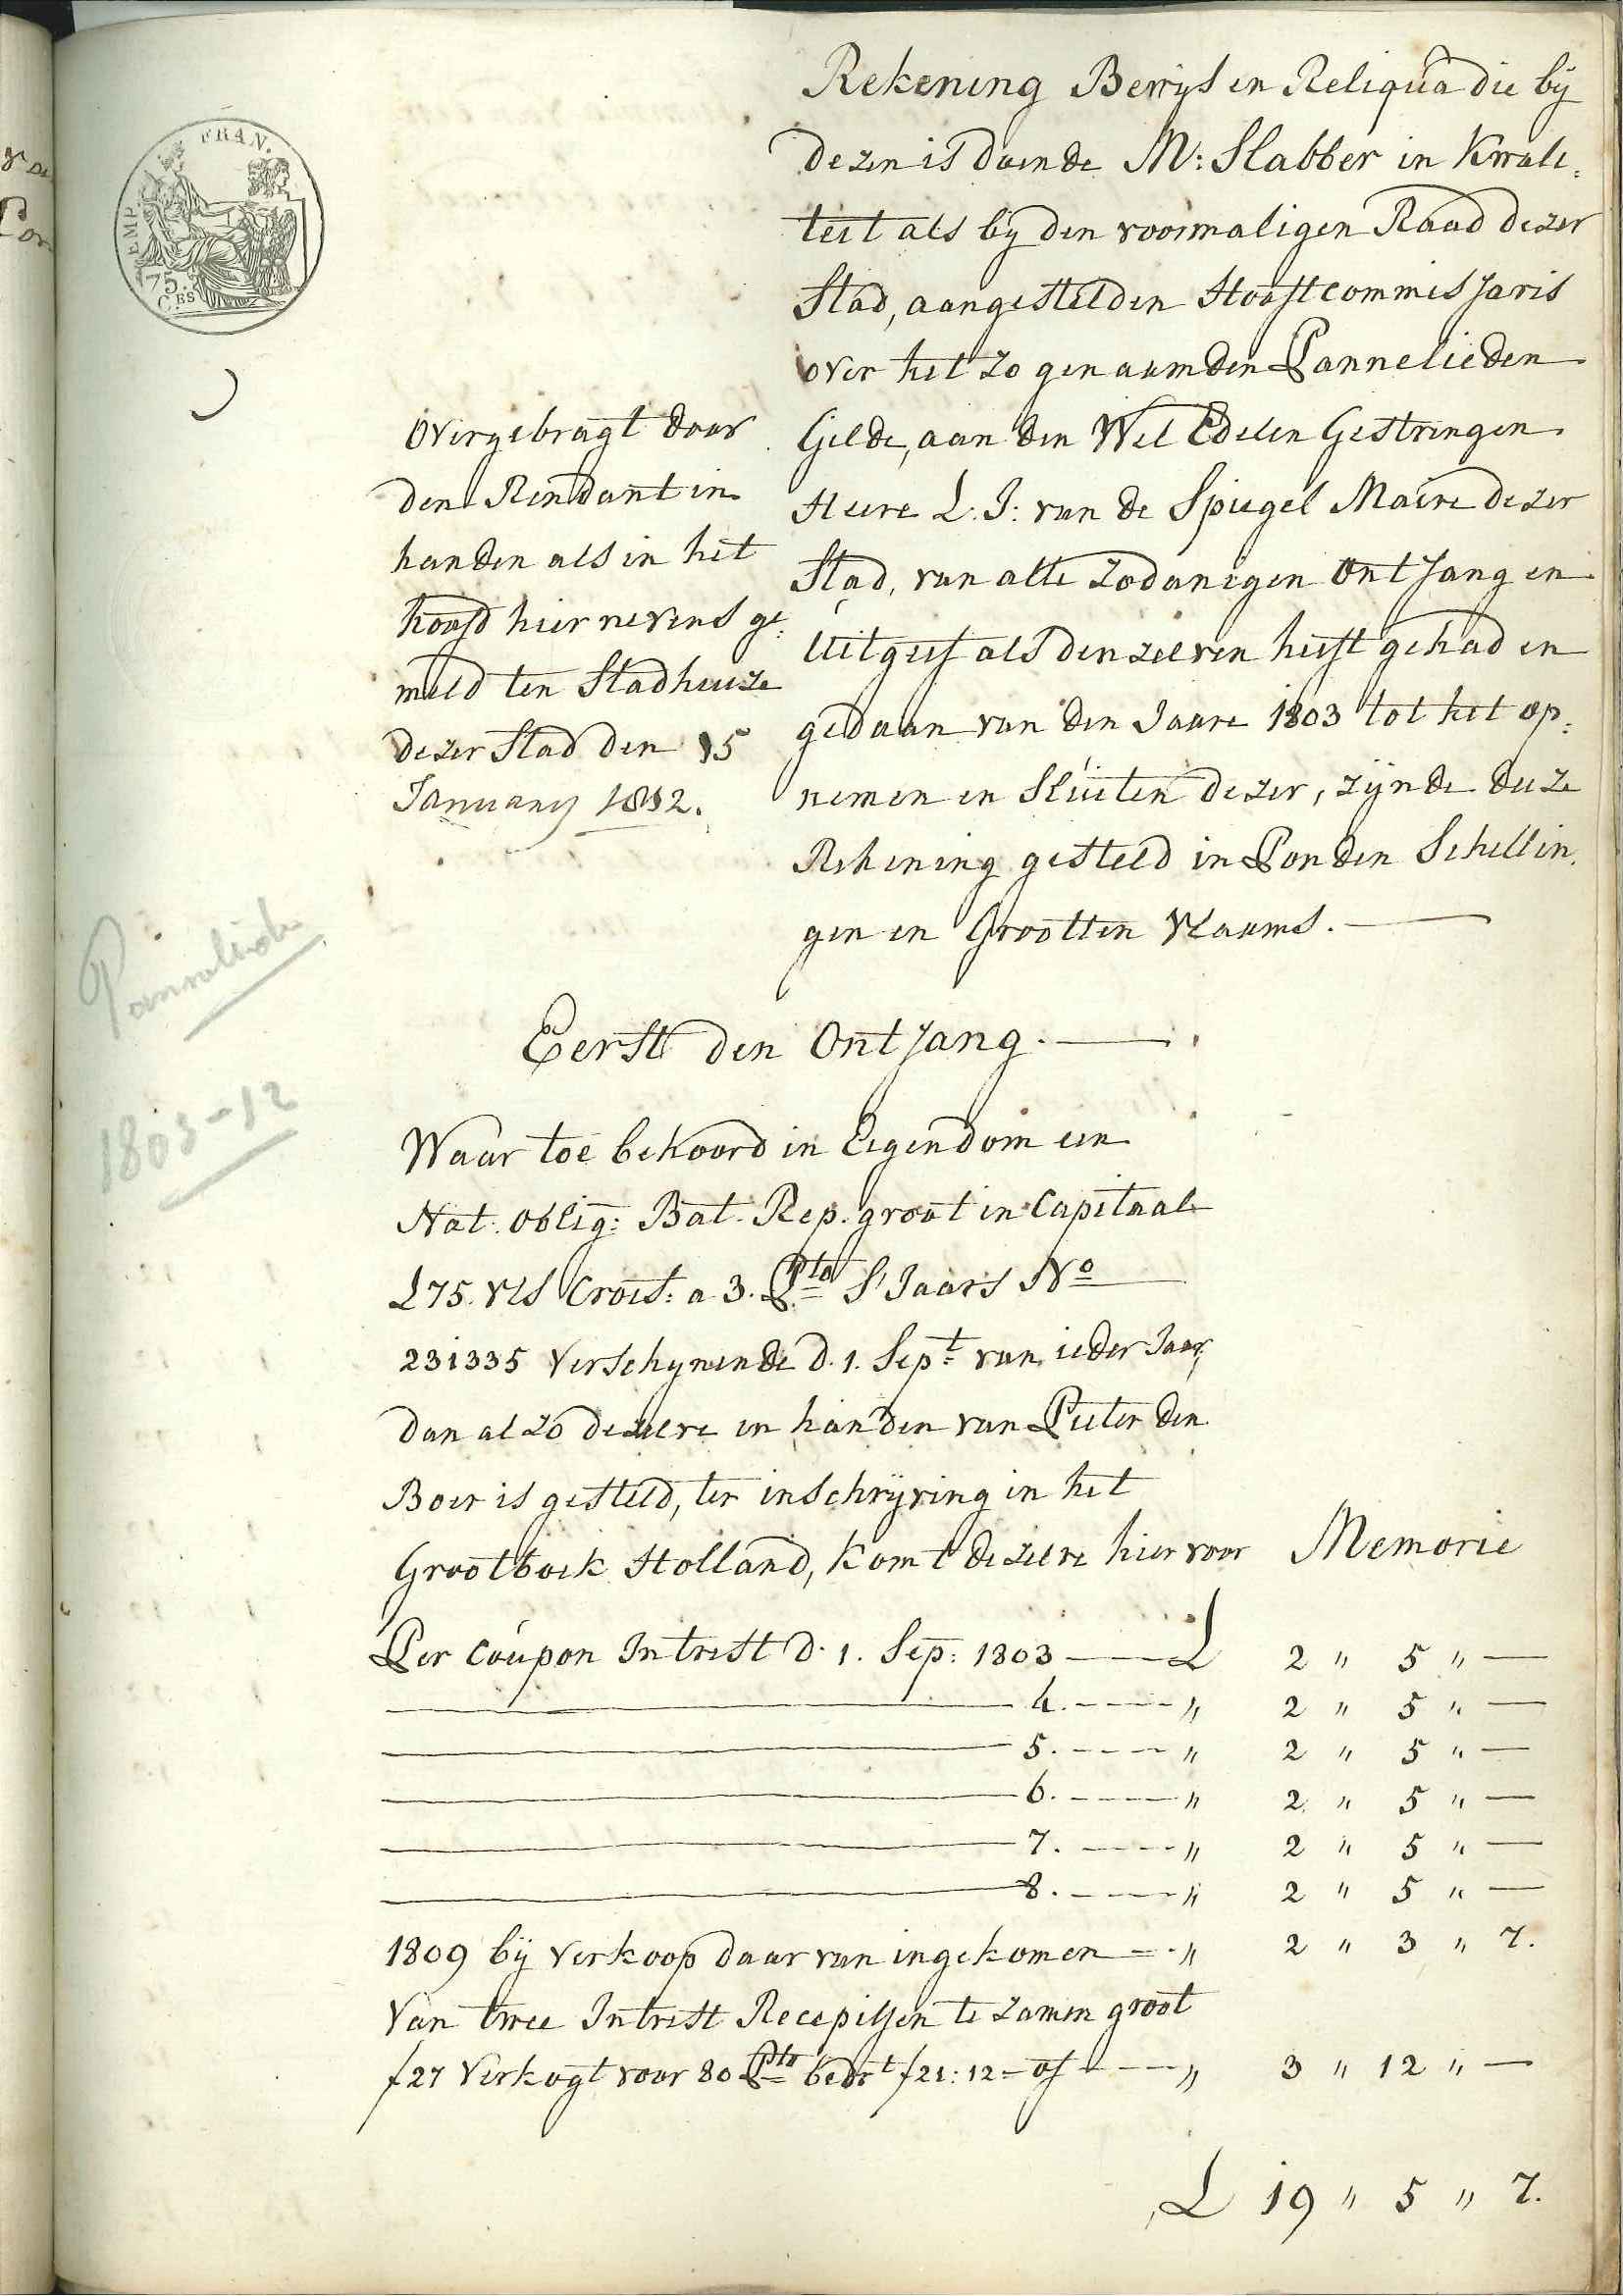 EMP. FRAN.
75.
C.ES
Rekening Bewijs en Reliqua die bij
dezen is doende M: Slabber in Kwali:
teit als bij den voormaligen Raad dezer
Stad, aangestelden Hooftcommissaris
over het zo genaamden Pannelieden
Gilde, aan den Wel Edelen Gestrengen
Heere L: J: van de Spiegel Maire dezer
Stad, van alle zodanigen Ontfang en
Uitgeef als denzelven heeft gehad en
gedaan van den Jaare 1803 tot het op:
nemen en Sluiten dezer, zijnde deze
Rekening gesteld in Ponden Schellin.
gen en Grootten Vlaams.
Overgebragt door
den Rendant in
handen als in het
hoofd hier nevens ge:
meld ten Stadhuize
dezer Stad den 15
January 1812.
Pannelieden
1803-12
Eerst den Ontfang.
Waar toe behoord in Eigendom een
Nat. Oblig: Bat. Rep. groot in Capitaal
£ 75. Vls Crois: a 3. Pto S'Jaars No
231335 Verschynende d. 1. Sept van ieder Jaar,
dan al zo dezelve in handen van Pieter den
Boer is gesteld, ter inschrijving in het
Grootboek Holland, komt dezelve hier voor Memorie
Per Coupon Intrest d. 1. Sep: 1803 £ 2 " 5 " —
4. " 2 " 5 " —
5. " 2 " 5 " —
6. " 2 " 5 " —
7. " 2 " 5 " —
8. " 2 " 5 " —
1809 bij Verkoop daar van ingekomen " 2 " 3 " 7.
Van twee Intrest Recepissen te zamen groot
f27 Verkogt voor 80 Pto bedrt f21:12 = of " 3 " 12 " —
£ 19 " 5 " 7.